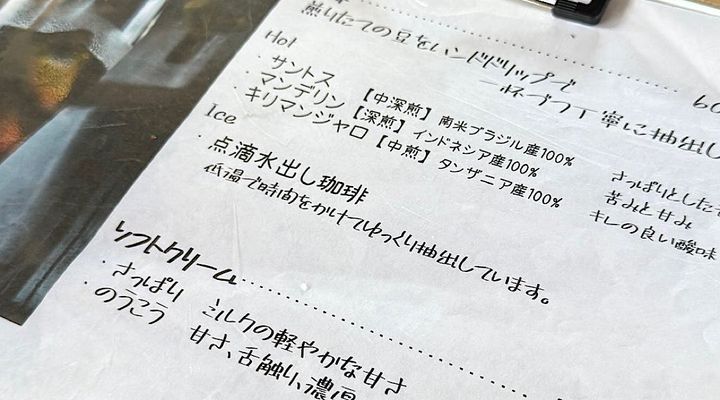 煎りたての豆をハンドドリップで
一杯ずつ丁寧に抽出し
Hot
・サントス 【中深煎】 南米ブラジル産100% さっぱりとした
・マンデリン 【深煎】 インドネシア産100% 苦みと甘み
・キリマンジャロ 【中煎】 タンザニア産100% キレの良い酸味
Ice
・点滴水出し珈琲
低温で時間をかけてゆっくり抽出しています。
ソフトクリーム
・さっぱり ミルクの軽やかな甘さ
・のうこう 甘さ、舌触り、濃厚